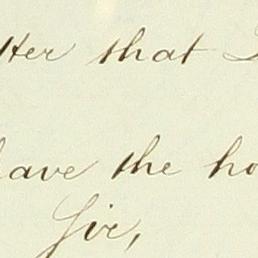 tter that
have the ho
Sir,